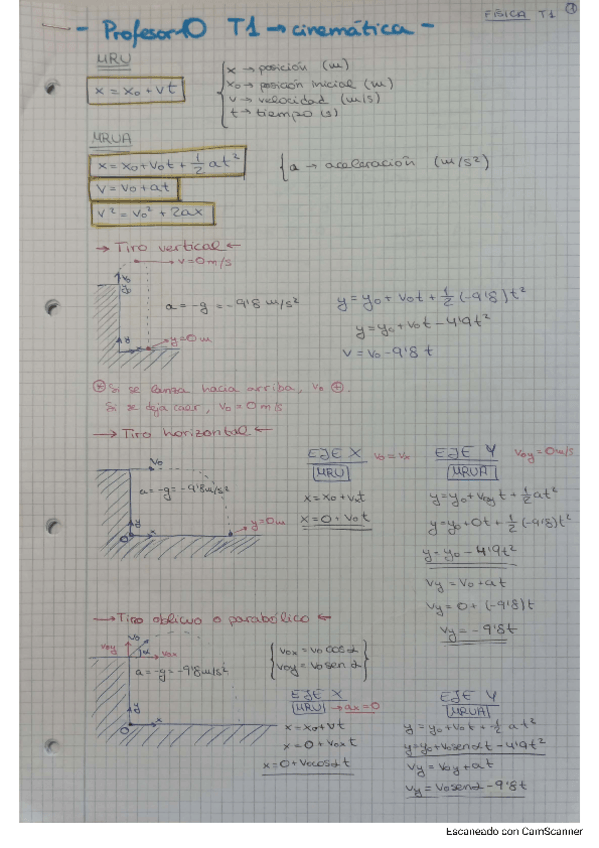 FÍSICA T1 1
- Profesor10 T1 → cinemática -
MRU
x = x0 + vt
x → posición (m)
x0 → posición inicial (m)
v → velocidad (m/s)
t → tiempo (s)
MRUA
x = x0 + v0t + 1/2 at²
v = v0 + at
v² = v0² + 2ax
a → aceleración (m/s²)
→ Tiro vertical ←
v = 0 m/s
v0
a = -g = -9'8 m/s²
y = 0 m
y
x
y = y0 + v0t + 1/2 (-9'8)t²
y = y0 + v0t - 4'9t²
v = v0 - 9'8 t
* Si se lanza hacia arriba, v0 ⊕.
Si se deja caer, v0 = 0 m/s
→ Tiro horizontal ←
v0
a = -g = -9'8 m/s²
y = 0 m
y
0
x
EJE X v0 = vx
MRU
x = x0 + vxt
x = 0 + v0t
EJE Y v0y = 0 m/s
MRUA
y = y0 + v0y t + 1/2 at²
y = y0 + 0t + 1/2 (-9'8)t²
y = y0 - 4'9t²
vy = v0 + at
vy = 0 + (-9'8)t
vy = -9'8t
→ Tiro oblicuo o parabólico ←
v0
v0y
α
v0x
a = -g = -9'8 m/s²
y
0
x
v0x = v0 cos α
v0y = v0 sen α
EJE X
MRU → ax = 0
x = x0 + vt
x = 0 + v0x t
x = 0 + v0 cos α t
EJE Y
MRUA
y = y0 + v0t + 1/2 at²
y = y0 + v0 sen α t - 4'9t²
vy = v0y + at
vy = v0 sen α - 9'8t
Escaneado con CamScanner